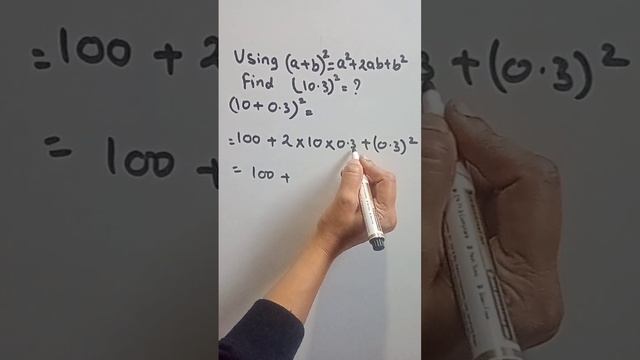 Using (a+b)² = a²+2ab+b²
find (10.3)² = ?
(10 + 0.3)² =
= 100 + 2 × 10 × 0.3 + (0.3)²
= 100 +